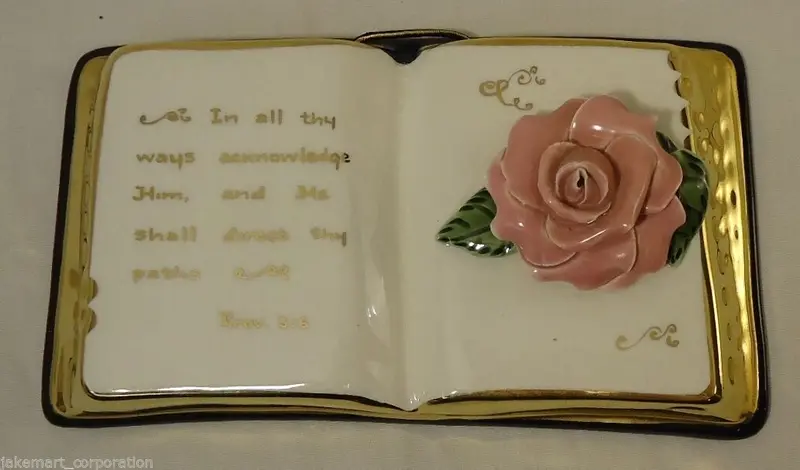 In all thy
ways acknowledge
Him, and He
shall direct thy
paths
Prov. 3:6
jakemart_corporation